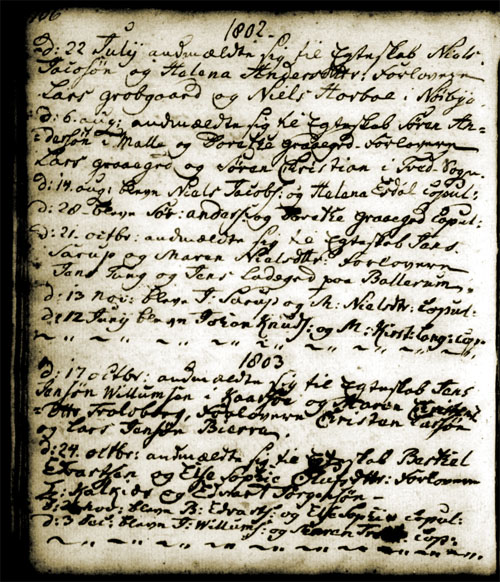 106
1802
d: 22 July anmældte sig til Egteskab Niels
Jacosøn og Helena Andersdttr: Forlovere
Lars grobgaard og Niels Horboe i Nøibye
d: 6. aug: anmældte sig til Egteskab Søren An-
dersøn i Malle og Dorethe graagrd. Forlovere
Lars graagrd og Søren Christian i Sogn.
d: 14. aug: blevn Niels Jacobs: og Helena copul:
d: 28 blevn Sør: anders: og Dorethe Graaegrd Copul:
d: 21. octbr: anmældte sig til Egteskab Jens
Sarup og Maren Nielsdttr: Forlovere
Jens Jung og Jens Ladegrd paa Ballerum.
d: 13 Nov: blevn J: Sarup og M: Nielsdtr: Copul:
d: 12 Juny blevn Knuds: og M: Kirst: cop:
1803
d: 17 octbr: anmældte sig til Egteskab Jens
Jensøn Willumsen i og Maren
Forlovere Christen Larsøn
og Lars Jensøn Bierre.
d: 24. octbr: anmældte sig til Egteskab Bertel
Edvartsøn og Else Sophie Olufsdttr: Forlovere
og Edvart Jørgensøn
nov: blevn B: Edvarts: og Else Sophie Copul:
d: 3 Dec: blevn J: Willums: og Maren cop: